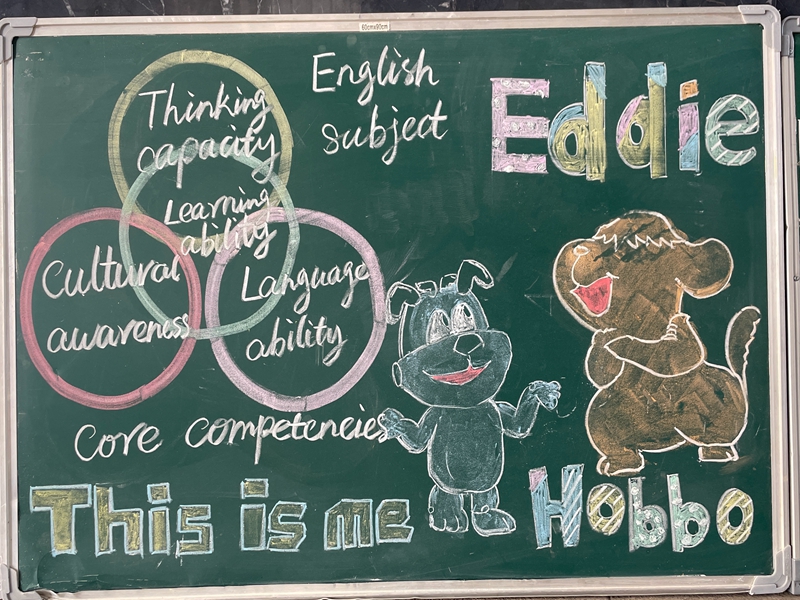 60cmx90cm
English
subject
Eddie
Thinking
capacity
Learning
ability
Cultural
awareness
Language
ability
Core competencies
This is me
Hobbo